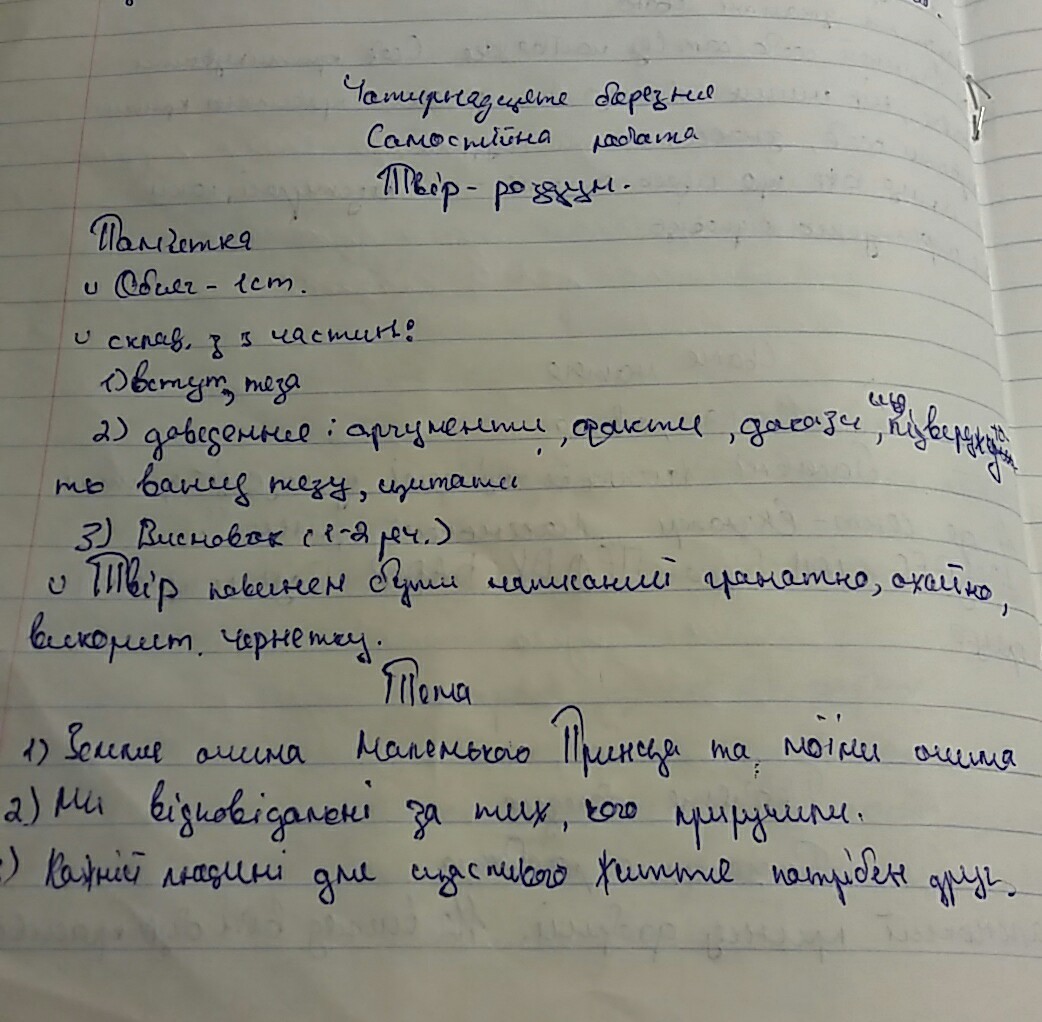 Чотирнадцяте березня
Самостійна робота
Твір-роздум.
Пам'ятка
Обсяг - 1ст.
склад. з 3 частин:
1) вступ, теза
2) доведення: аргументи, факти, докази, що підтверджую
ть вашу тезу, цитати
3) Висновок (1-2 реч.)
Твір повинен бути написаний грамотно, охайно,
використ. чернетку.
Тема
1) Земля очима Маленького Принца та моїми очима
2) Ми відповідальні за тих, кого приручили.
) Кожній людині для щасливого життя потрібен друг.